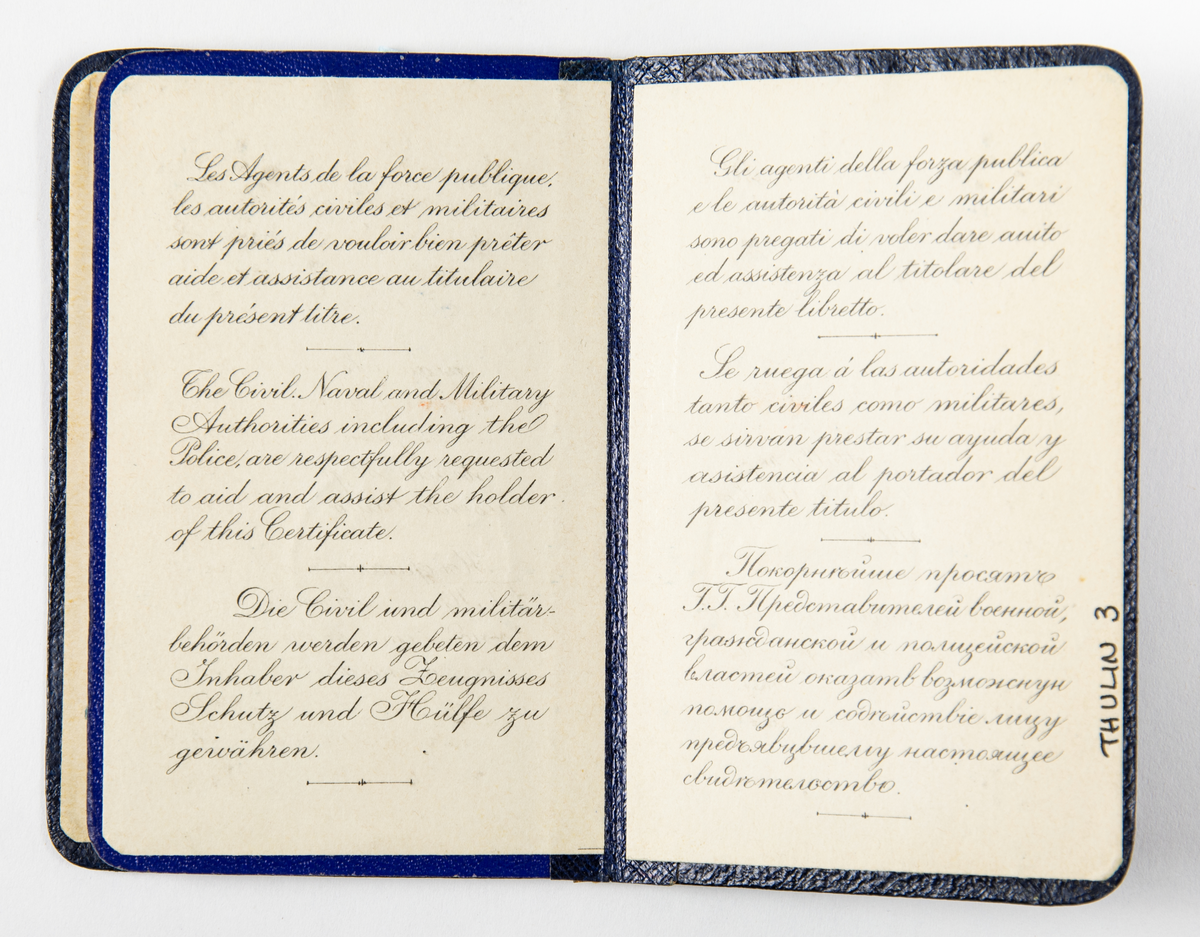 Les Agents de la force publique,
les autorités civiles et militaires
sont priés de vouloir bien prêter
aide et assistance au titulaire
du présent titre.
The Civil. Naval and Military
Authorities including the
Police, are respectfully requested
to aid and assist the holder
of this Certificate.
Die Civil und militär-
behörden werden gebeten dem
Inhaber dieses Zeugnisses
Schutz und Hülfe zu
gewähren.
Gli agenti della forza publica
e le autorità civili e militari
sono pregati di voler dare auito
ed assistenza al titolare del
presente libretto.
Se ruega á las autoridades
tanto civiles como militares,
se sirvan prestar su ayuda y
asistencia al portador del
presente titulo.
Покорнѣйше просятъ
Г.Г. Представителей военной,
гражданской и полицейской
властей оказать возможную
помощь и содѣйствіе лицу
предъявившему настоящее
свидѣтельство.
THULIN 3